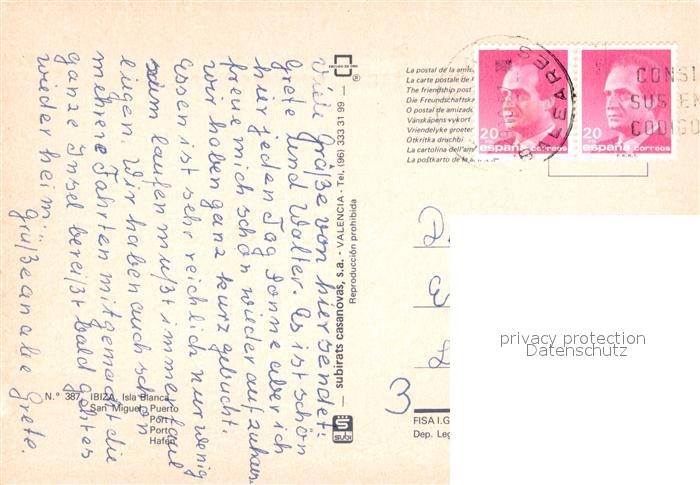 Viele Grüße von hier sendet:
Grete und Walter. Es ist schön
hier jeden Tag Sonne aber ich
freue mich schon wieder auf zuhaus.
wir haben ganz kurz gebucht.
Essen ist sehr reichlich nur wenig
zum laufen mußt immer faul
liegen. Wir haben auch schon
mehrere Fahrten mitgemacht die
ganze Insel bereißt bald geht es
wieder heim!!
Grüße an alle Grete.
N.° 387 IBIZA. Isla Blanca
San Miguel. Puerto
Port
Porto
Hafen
subirats casanovas, s.a. - VALENCIA - Tel. (96) 333 31 99
Reproducción prohibida
SUBI
La postal de la amis
La carte postale de
The friendship post
Die Freundschaftska
O postal de amizade
Vänskápens vykort
Vriendelyke groeten
Otkritka drochbi
La cartolina dell'am
La poştkarto de la
20
españa correos
F.N.M.T.
20
españa correos
F.N.M.T.
BALEARES
CONSI
SUS EN
CODIGO
3
FISA I.G
Dep. Leg
privacy protection
Datenschutz